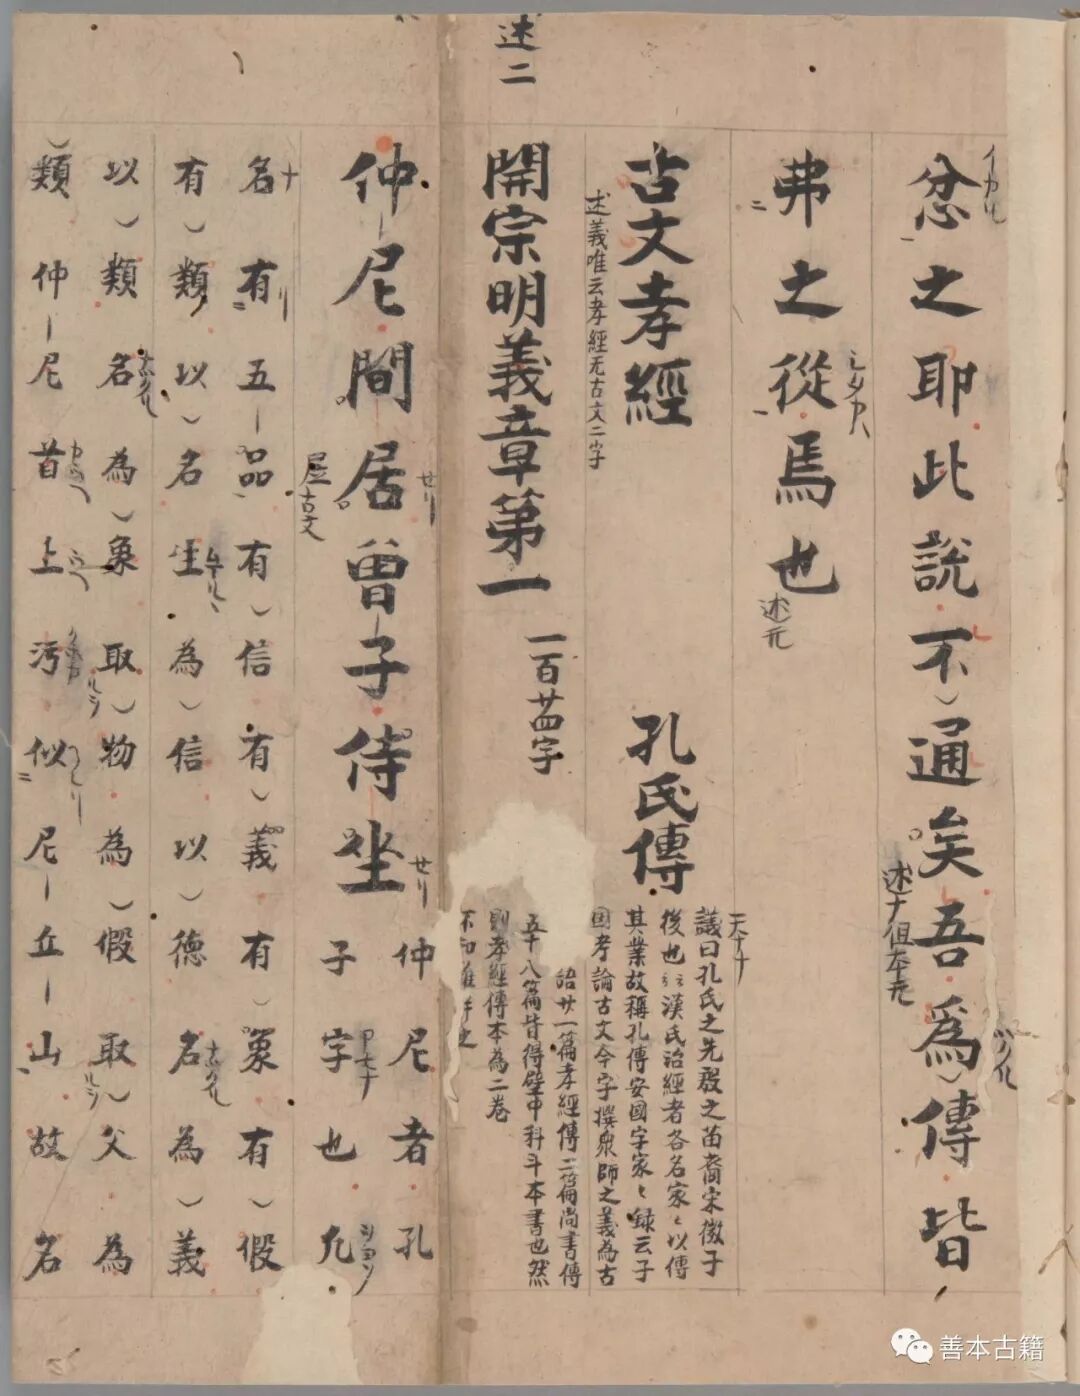 忿之耶此説不通矣吾爲傳皆
述ナ但本无
弗之從焉也
述无
古文孝經 孔氏傳
述義唯云孝經无古文二字
議曰孔氏之先殷之苗裔宋微子
後也漢氏治經者各名家〻以傳
其業故稱孔傳安國字家〻録云子
國孝論古文今字撰衆師之義為古
廿一篇孝經傳二篇尚書傳
五十八篇皆得壁中科斗本書也然
則孝經傳本為二卷
不知
述二
開宗明義章第一 一百廿四字
仲尼閒居曾子侍坐
凥古文
仲尼者孔
子字也凡
名有五品有信有義有象有假
有類以名生為信以德名為義
以類名為象取物為假取父為
類仲尼首上汚似尼丘山故名
善本古籍